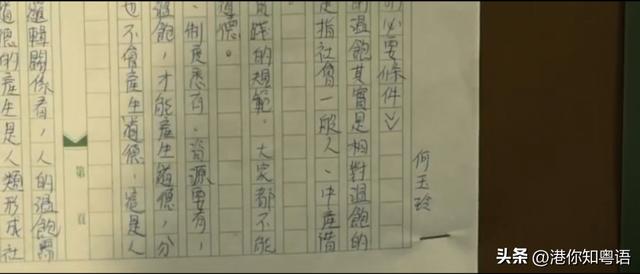 何玉玲
的必要條件》
的溫飽其實是相對溫飽的
是指社會一般人、中產階
實踐的規範。大家都不能
道德。
、制度悉可、資源要有,
溫飽,才能產生道德,分
也不會產生道德,這是人
邏輯關係看,人的溫飽需
道德的產生是人類形成社
第 頁
头条 @港你知粤语